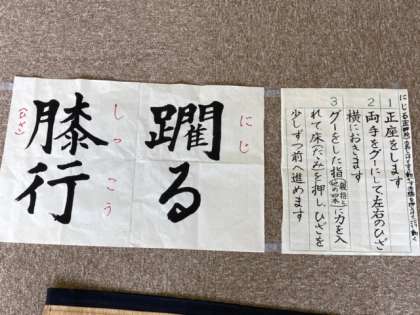 1 正座をします
2 両手をグーにして左右のひざ
横におきます
3 グーをした指(親指と他の四本)に力を入
れて床・たたみを押し、ひざを
少しずつ前へ進めます
躙る
にじ
膝行
しっこう
(ひざ)